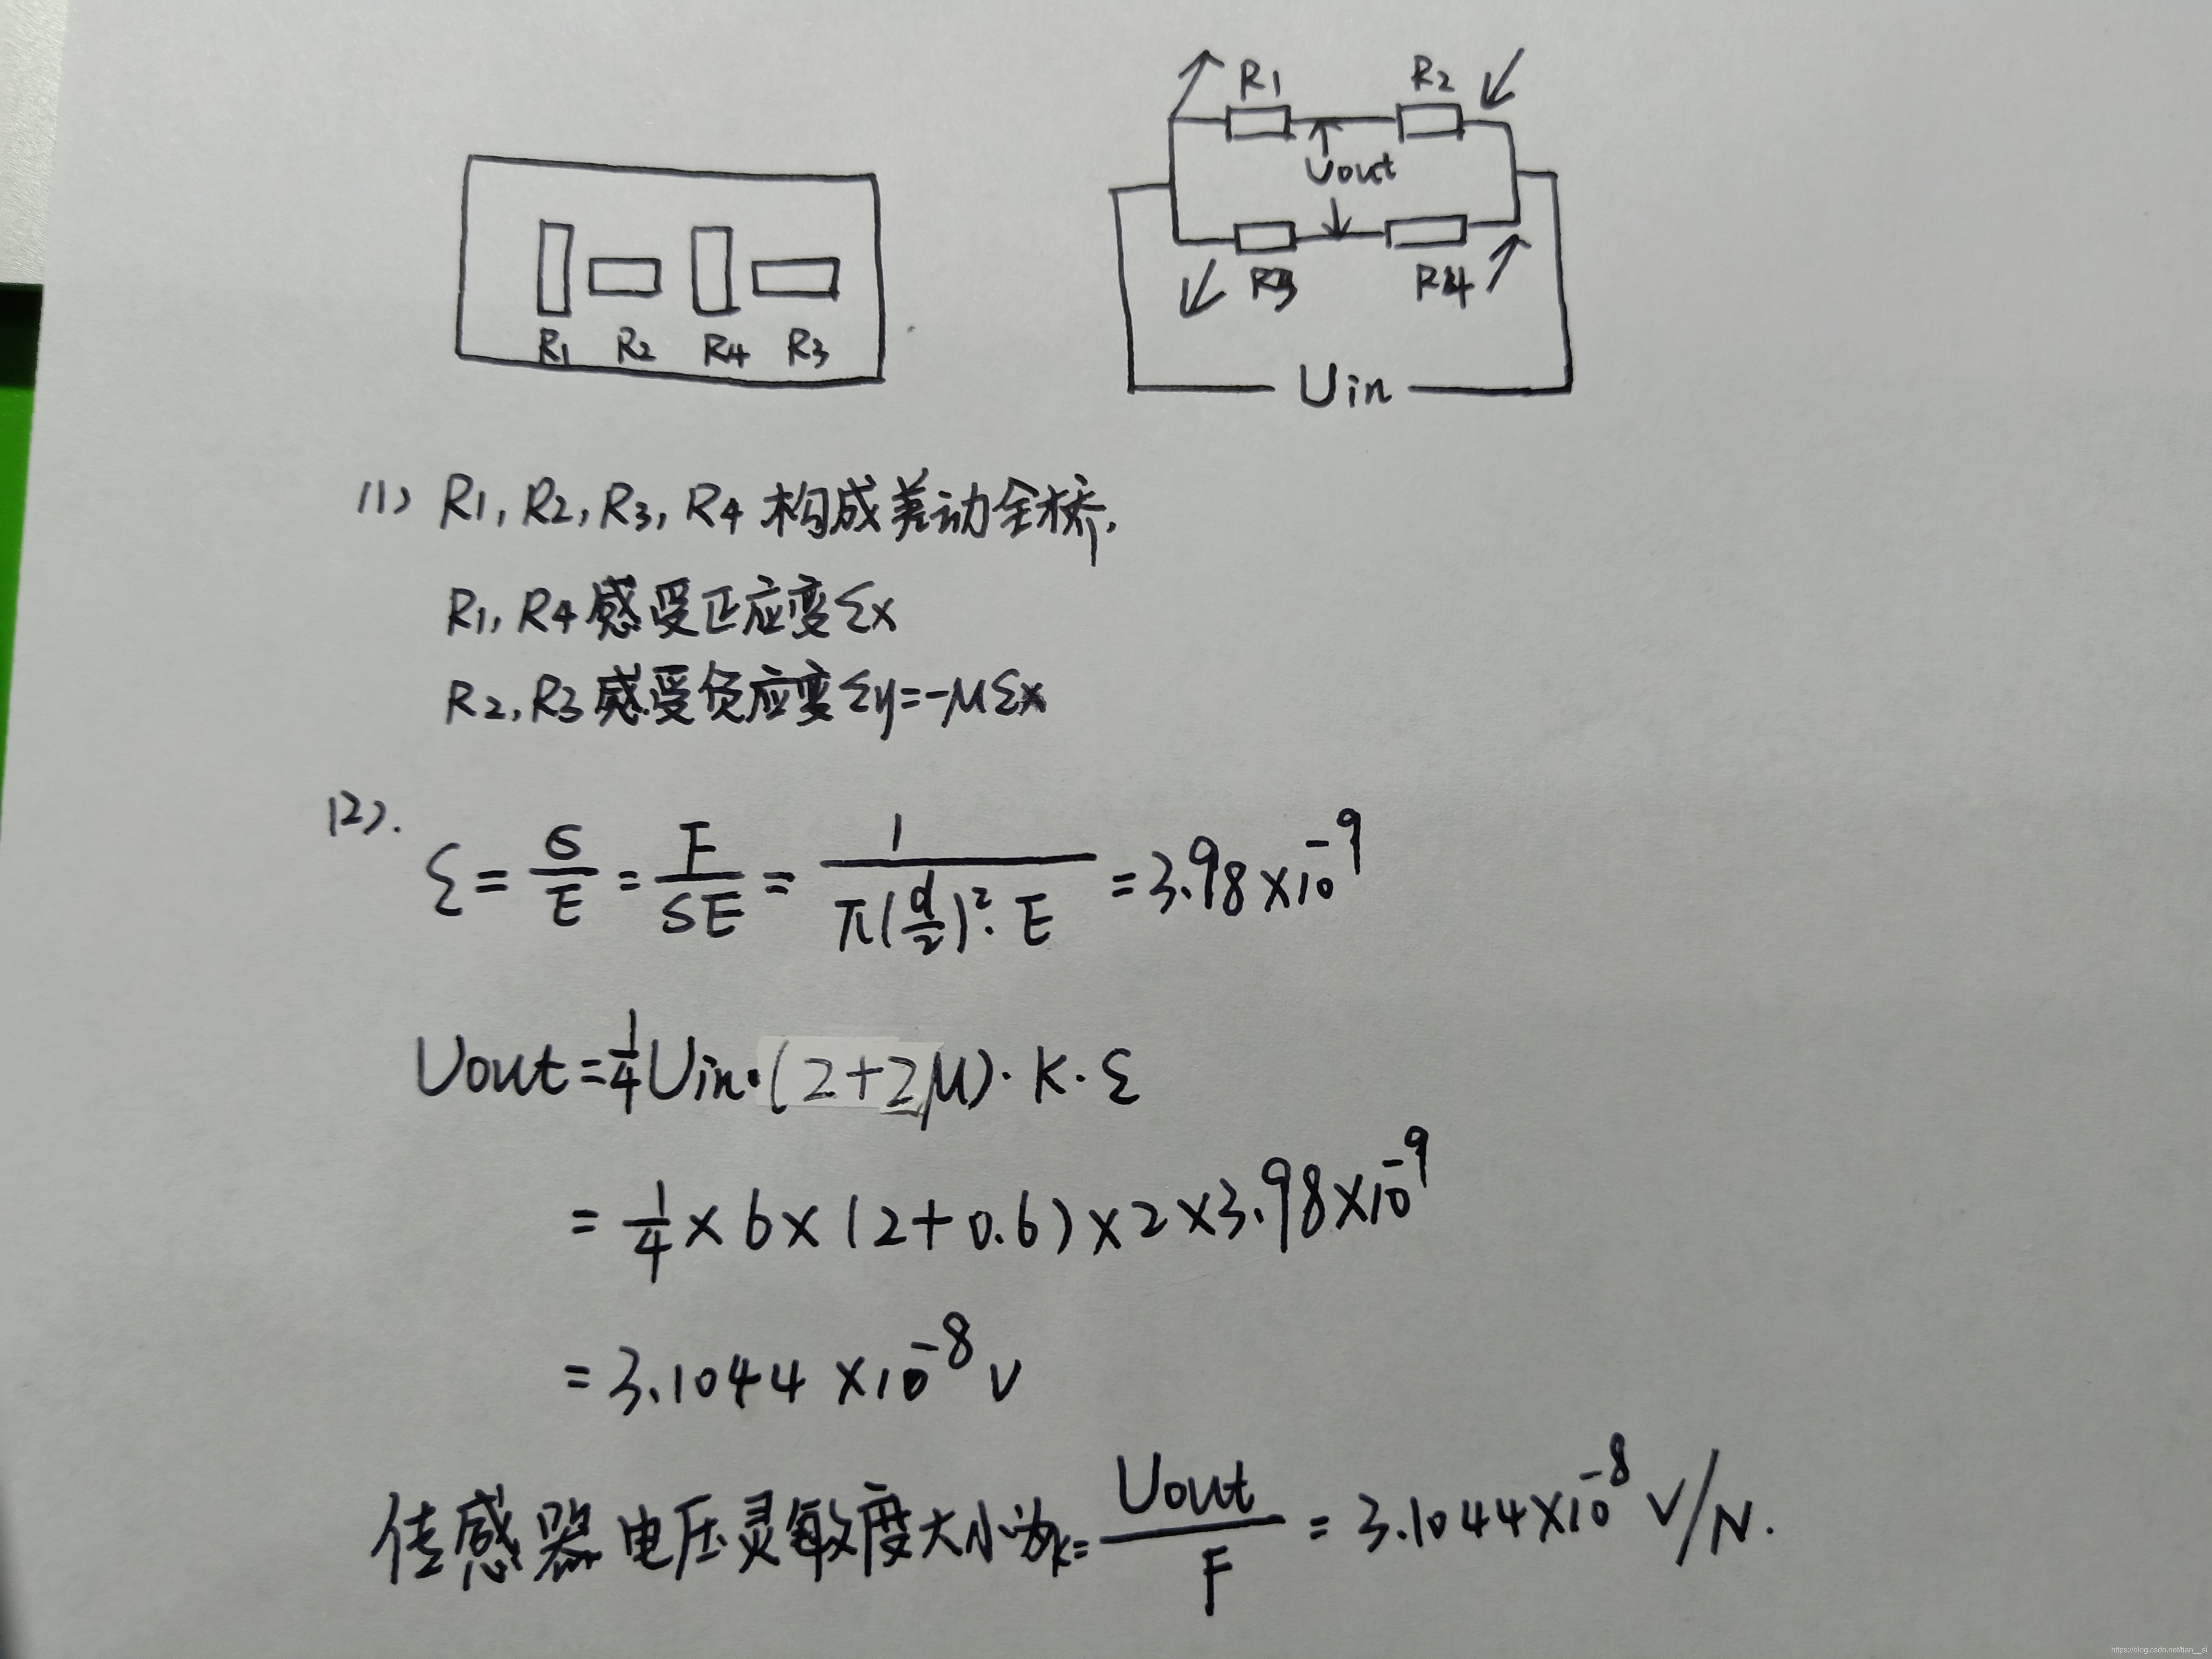 R1 R2
Uout
R3 R4
Uin
R1 R2 R4 R3
(1) R1, R2, R3, R4 构成差动全桥.
R1, R4 感受正应变εx
R2, R3 感受负应变εy=-μεx
(2).
ε = σ/E = F/SE = 1/π(d/2)²·E = 3.98×10⁻⁹
Uout=1/4Uin·(2+2μ)·K·ε
= 1/4 × 6 × (2+0.6) × 2 × 3.98×10⁻⁹
= 3.1044 ×10⁻⁸ V
传感器电压灵敏度大小为k= Uout/F = 3.1044×10⁻⁸ V/N.
https://blog.csdn.net/tian__si